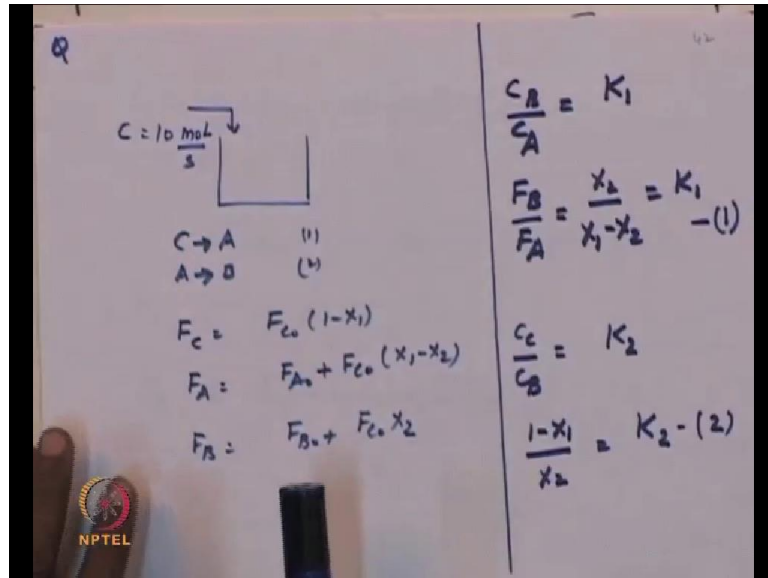 Q
C = 10 mol/s
C → A (1)
A → B (2)
F_C = F_C0 (1-X1)
F_A = F_A0 + F_C0 (X1-X2)
F_B = F_B0 + F_C0 X2
42
C_B/C_A = K1
F_B/F_A = X2/(X1-X2) = K1 -(1)
C_C/C_B = K2
(1-X1)/X2 = K2 -(2)
NPTEL